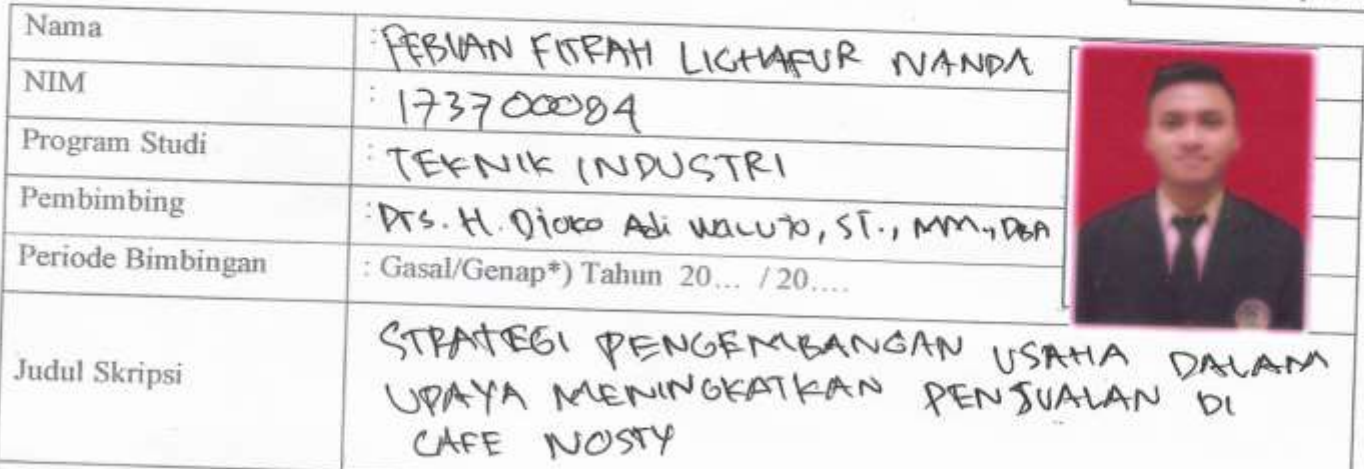 Nama : FEBVAN FITRAH LIGHAFUR NANDA
NIM : 173700084
Program Studi : TEKNIK INDUSTRI
Pembimbing : Drs. H. Djoko Adi Waluyo, ST., MM., DBA
Periode Bimbingan : Gasal/Genap*) Tahun 20... / 20....
Judul Skripsi STRATEGI PENGEMBANGAN USAHA DALAM
UPAYA MENINGKATKAN PENJUALAN DI
CAFE NOSTY